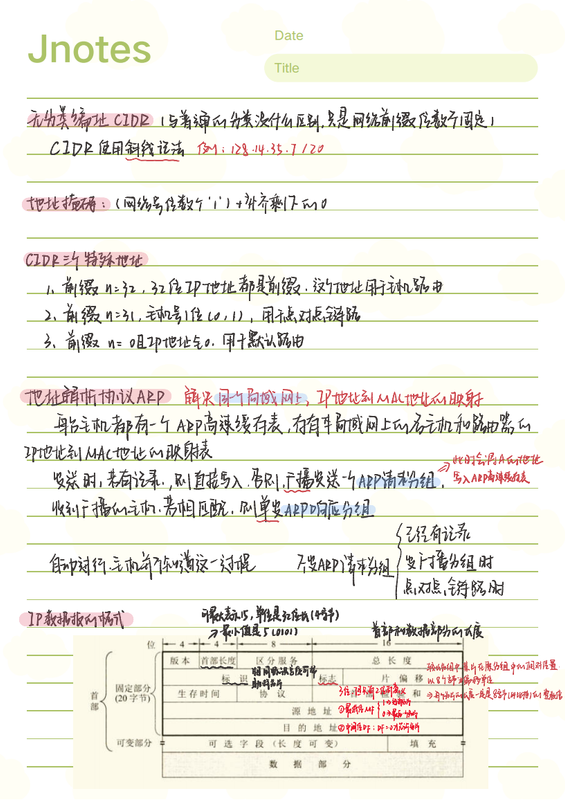 Jnotes
Date
Title
无分类编址 CIDR (与普通的分类没什么区别,只是网络前缀位数不固定)
CIDR 使用斜线记法 例:128.14.35.7/20
地址掩码:(网络号位数个'1')+补齐剩下的0
CIDR三个特殊地址
1、前缀 n=32,32位IP地址都是前缀.这个地址用于主机路由
2、前缀 n=31,主机号1位(0,1),用于点对点链路
3、前缀 n=0且IP地址全0.用于默认路由
地址解析协议ARP 解决同个局域网上,IP地址到MAC地址的映射
每台主机都有一个ARP高速缓存表,存有本局域网上的各主机和路由器的
IP地址到MAC地址的映射表
发送时,若有记录,则直接写入.否则,广播发送一个ARP请求分组
此时会将A的地址
写入ARP高速缓存表
收到广播的主机.若相匹配,则单发ARP响应分组
已经有记录
自动进行,主机并不知道这一过程 不发ARP请求分组 发广播分组时
点对点链路时
IP数据报的格式
可最大表示15,单位是32位长(4字节)
→最小值是5(0101) 首部和数据部分的长度
位 4 4 8 16
版本 首部长度 区分服务 总长度
标识 标志 片偏移
首部 固定部分
(20字节)
生存时间 协议
源地址
目的地址
可变部分 可选字段(长度可变) 填充
数据部分